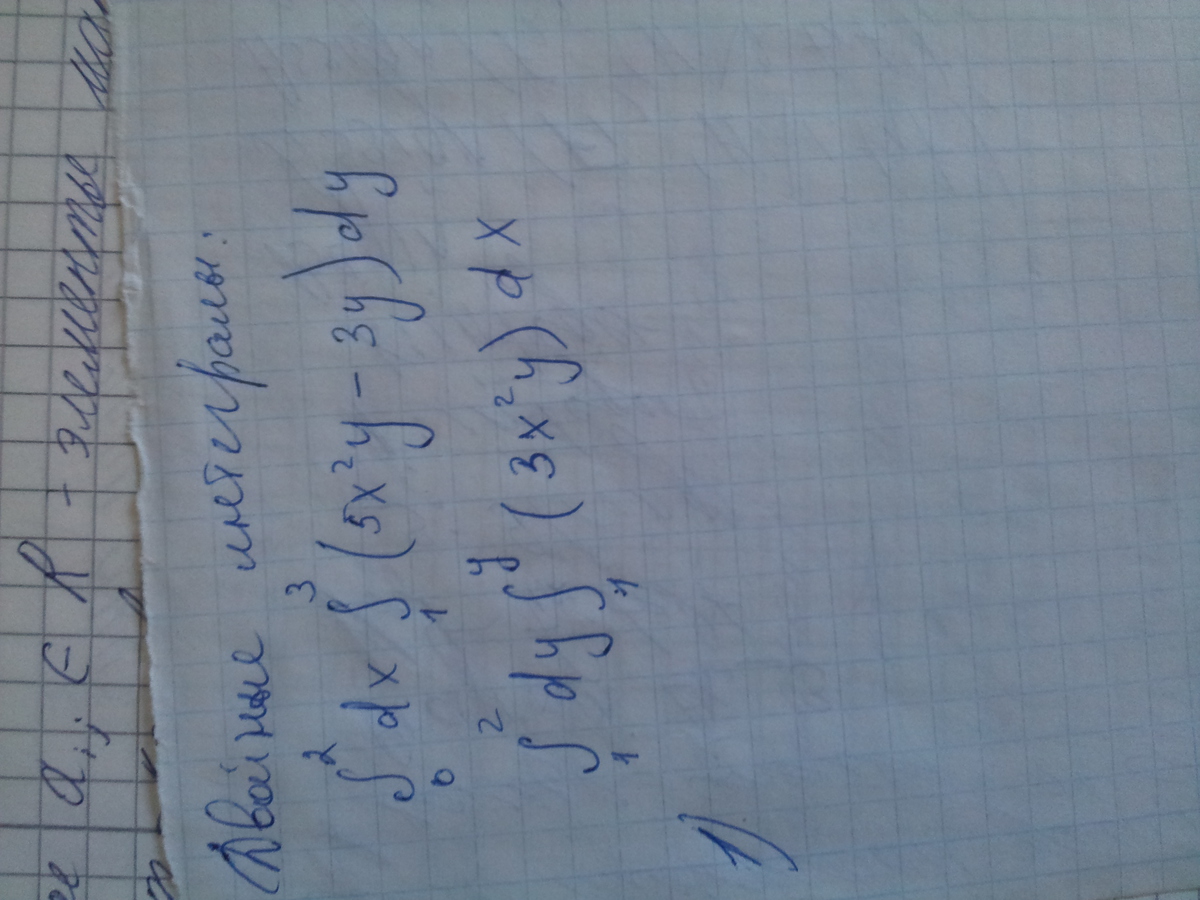 ее a i,j ∈ R - элементы ма
Двойные интегралы:
∫₀² dx ∫₁³ (5x²y - 3y) dy
∫₁² dy ∫₁ʸ (3x²y) dx
1)